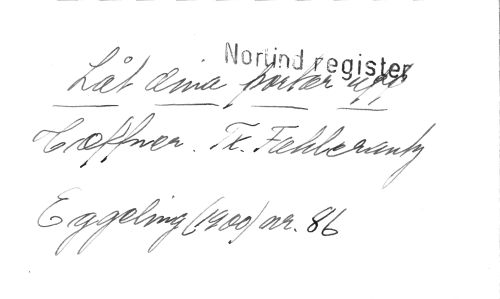 Nortind register
Låt dina portar upp
Hæffner. Tx. Fahlcrantz
Eggeling (1900) nr. 86